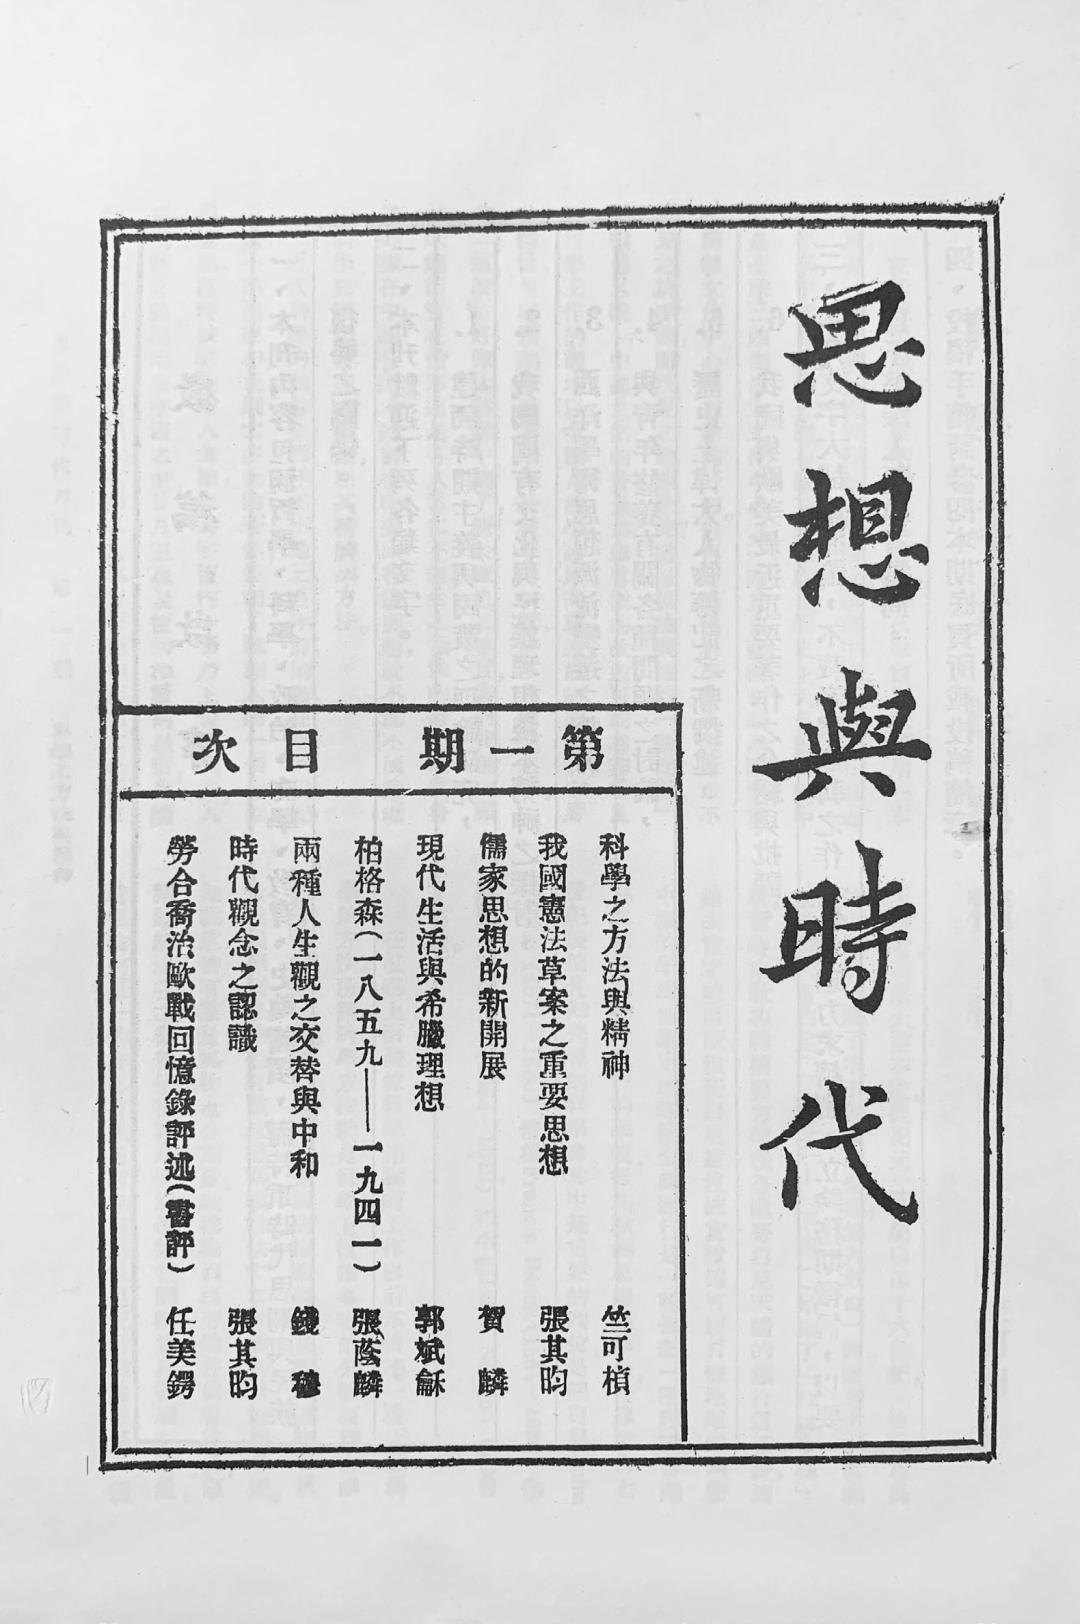 思想與時代
第一期 目次
科學之方法與精神 竺可楨
我國憲法草案之重要思想 張其昀
儒家思想的新開展 賀麟
現代生活與希臘理想 郭斌龢
柏格森(一八五九——一九四一) 張蔭麟
兩種人生觀之交替與中和 錢穆
時代觀念之認識 張其昀
勞合喬治歐戰回憶錄評述(書評) 任美鍔